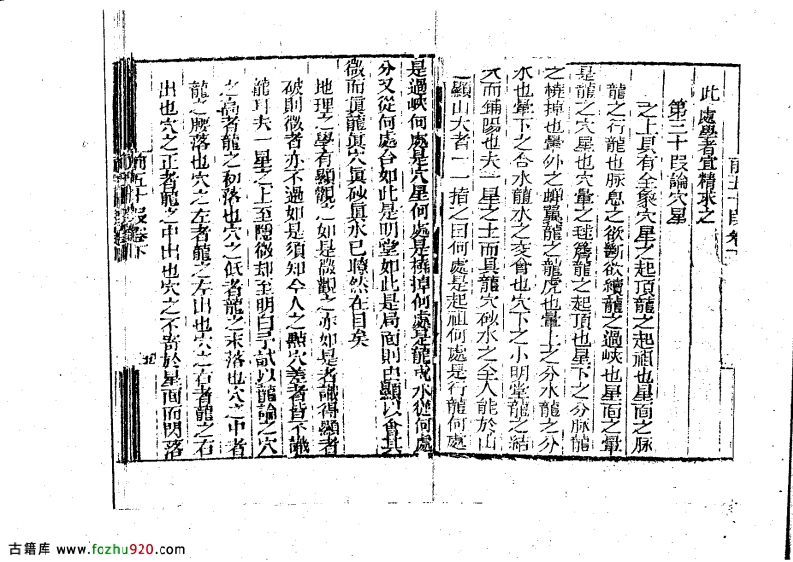 此處學者宜精求之
第三十段論穴星
之上具有全象穴星之起頂龍之起祖也星面之脉
龍之行龍也脉息之欲斷欲續龍之過峽也星面之暈
是龍之穴星也穴暈之毬簷龍之起頂也星下之分脉龍
之橈掉也暈外之蟬翼龍之龍虎也暈上之分水龍之分
水也暈下之合水龍水之交會也穴下之小明堂龍之結
大而鋪陽也夫一星之上而具龍穴砂水之全人能於山
顯山大者一一指之曰何處是起祖何處是行龍何處
是過峽何處是穴星何處是橈掉何處是龍虎水從何處
分又從何處合如此是明堂如此是局面則由顯以會其
微而眞龍眞穴眞砂眞水已瞭然在目矣
地理之學有顯觀之如是微觀之亦如是者識得顯者
破則微者亦不過如是須知今人之點穴差者皆不識
龍耳夫一星之上至隱微却至明白予試以龍論之穴
之高者龍之初落也穴之低者龍之末落也穴之中者
龍之腰落也穴之左者龍之左出也穴之右者龍之右
出也穴之正者龍之中出也穴之不寄於星面而閃落
前五十段卷下
古籍库 www.fozhu920.com